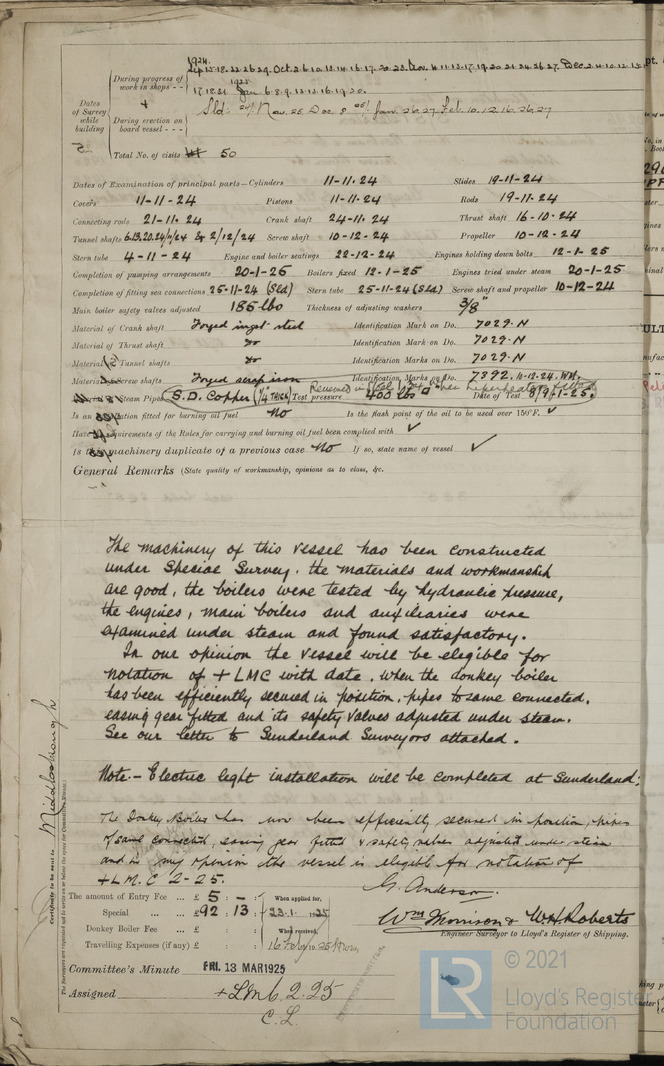 1924.
During progress of work in shops - -
Sep 15.18.22.26.29. Oct. 2.6.10.13.14.16.17.20.23. Nov. 4.11.13.17.19.20.21.24.26.27. Dec. 2.4.10.12.15
17.18.21. Jan 6.8.9.12.13.16.19.20.
Dates of Survey while building
During erection on board vessel - - -
Sld: Nov. 25. Dec. 8. Jan. 26.27. Feb. 10.12.16.26.27
Total No. of visits 50
Dates of Examination of principal parts—Cylinders 11-11-24 Slides 19-11-24
Covers 11-11-24 Pistons 11-11-24 Rods 19-11-24
Connecting rods 21-11-24 Crank shaft 24-11-24 Thrust shaft 16-10-24
Tunnel shafts 6.13.20.24/11/24 & 2/12/24 Screw shaft 10-12-24 Propeller 10-12-24
Stern tube 4-11-24 Engine and boiler seatings 22-12-24 Engines holding down bolts 12-1-25
Completion of pumping arrangements 20-1-25 Boilers fixed 12-1-25 Engines tried under steam 20-1-25
Completion of fitting sea connections 25-11-24 (Sld) Stern tube 25-11-24 (Sld) Screw shaft and propeller 10-12-24
Main boiler safety valves adjusted 185 lbs Thickness of adjusting washers 3/8"
Material of Crank shaft Forged ingot steel Identification Mark on Do. 7029.N
Material of Thrust shaft Do Identification Mark on Do. 7029.N
Material of Tunnel shafts Do Identification Marks on Do. 7029.N
Material of Screw shafts Forged scrap iron Identification Marks on Do. 7392. 11-12-24. WM.
Renewed in steel when superheaters fitted
Steam Pipes S.D. Copper (1/4 THICK) Test pressure 400 lbs Date of Test 8/9-1-25.
Is an installation fitted for burning oil fuel No Is the flash point of the oil to be used over 150°F. ✓
Have the requirements of the Rules for carrying and burning oil fuel been complied with ✓
Is this machinery duplicate of a previous case No If so, state name of vessel ✓
General Remarks (State quality of workmanship, opinions as to class, &c.
The machinery of this vessel has been constructed
under Special Survey. the materials and workmanship
are good, the boilers were tested by hydraulic pressure,
the engines, main boilers and auxiliaries were
examined under steam and found satisfactory.
In our opinion the vessel will be elegible for
notation of + LMC with date, when the donkey boiler
has been efficiently secured in position, pipes to same connected,
easing gear fitted and its safety valves adjusted under steam.
See our letter to Sunderland Surveyors attached.
Note.- Electric light installation will be completed at Sunderland.
The Donkey Boiler has now been efficiently secured in position, pipes
of same connected, easing gear fitted & safety valves adjusted under steam
and in my opinion the vessel is eligible for notation of
+ L.M.C 2-25.
G. Anderson.
Certificate to be sent to Middlesbrough
The amount of Entry Fee ... £ 5 : - : When applied for,
Special ... ... £ 92 . 13 : 23.1. 1925
Donkey Boiler Fee ... £ : : When received,
Travelling Expenses (if any) £ : : 16 Feby 1925
Wm Morrison & WH Roberts
Engineer Surveyor to Lloyd's Register of Shipping.
Committee's Minute FRI. 13 MAR 1925
Assigned + LMC 2.25
C.L.
© 2021
Lloyd's Register
Foundation
LR